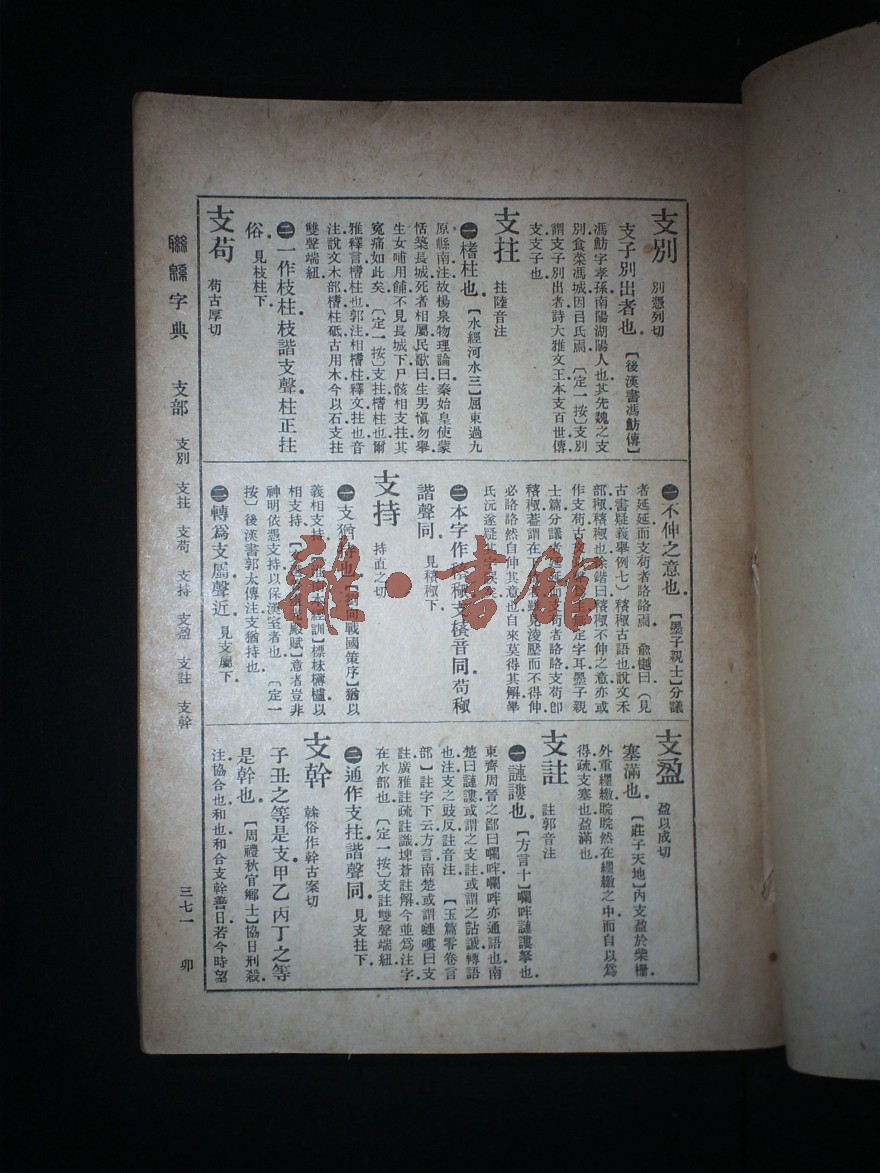 支別 別憑列切
支子別出者也。【後漢書馮魴傳】
馮魴字孝孫南陽湖陽人也其先魏之支
別食菜馮城因曰氏焉【定一按】支別
謂支子別出者詩大雅文王本支百世傳
支支子也
支拄 拄陸音注
㊀楮柱也。【水經河水三】屈東過九
原縣南注故楊泉物理論曰秦始皇使蒙
恬築長城死者相屬民歌曰生男愼勿舉
生女哺用餔不見長城下尸骸相支拄其
寃痛如此矣【定一按】支拄楮柱也爾
雅釋言楮柱也郭注相楮柱釋文拄也音
注說文木部楮柱砥古用木今以石支拄
雙聲端紐
㊁一作枝柱枝諧支聲柱正拄
俗。見枝柱下
支苟 苟古厚切
㊀不伸之意也。【墨子親士】分議
者延延而支苟者詻詻焉 俞樾曰（見
古書疑義舉例七）𥡴𥠇古語也說文禾
部𥠇𥡴𥠇也徐鍇曰𥡴𥠇不伸之意亦或
士篇分議者延延而支苟者詻詻支苟卽
必詻詻然自伸其意也自來莫得其解畢
㊁本字作𥡴𥠇支𥡴音同苟𥠇
諧聲同 見𥡴𥠇下
支持 持直之切
㊀支猶持也【劉向戰國策序】猶以
義相支持 標枺欂櫨以
相支持 殿賦】意者豈非
神明依憑支持以保漢室者也【定一
按】後漢書郭太傳注支猶持也
㊁轉爲支屬聲近 見支屬下
支盈 盈以成切
塞滿也【莊子天地】內支盈於柴柵
外重纆繳睆睆然在纆繳之中而自以爲
得疏支塞也盈滿也
支註 註郭音注
㊀謰謱也。【方言十】囒哰謰謱拏也
東齊周晉之鄙曰囒哰囒哰亦通語也南
楚曰謰謱或謂之支註或謂之詀謕轉語
也注支之豉反註音注【玉篇零卷言
部】註字下云方言南楚或謂謰謱曰支
註廣雅註疏註識埤蒼註解今並爲注字
在水部也【定一按】支註雙聲端紐
㊁通作支拄諧聲同 見支拄下
支幹 榦俗作幹古案切
子丑之等是支甲乙丙丁之等
是幹也【周禮秋官鄉士】協日刑殺
注協合也和也和合支幹善日若今時望
聯緜字典 支部 支別 支拄 支苟 支持 支盈 支註 支幹
三七一 卯
雜·書館